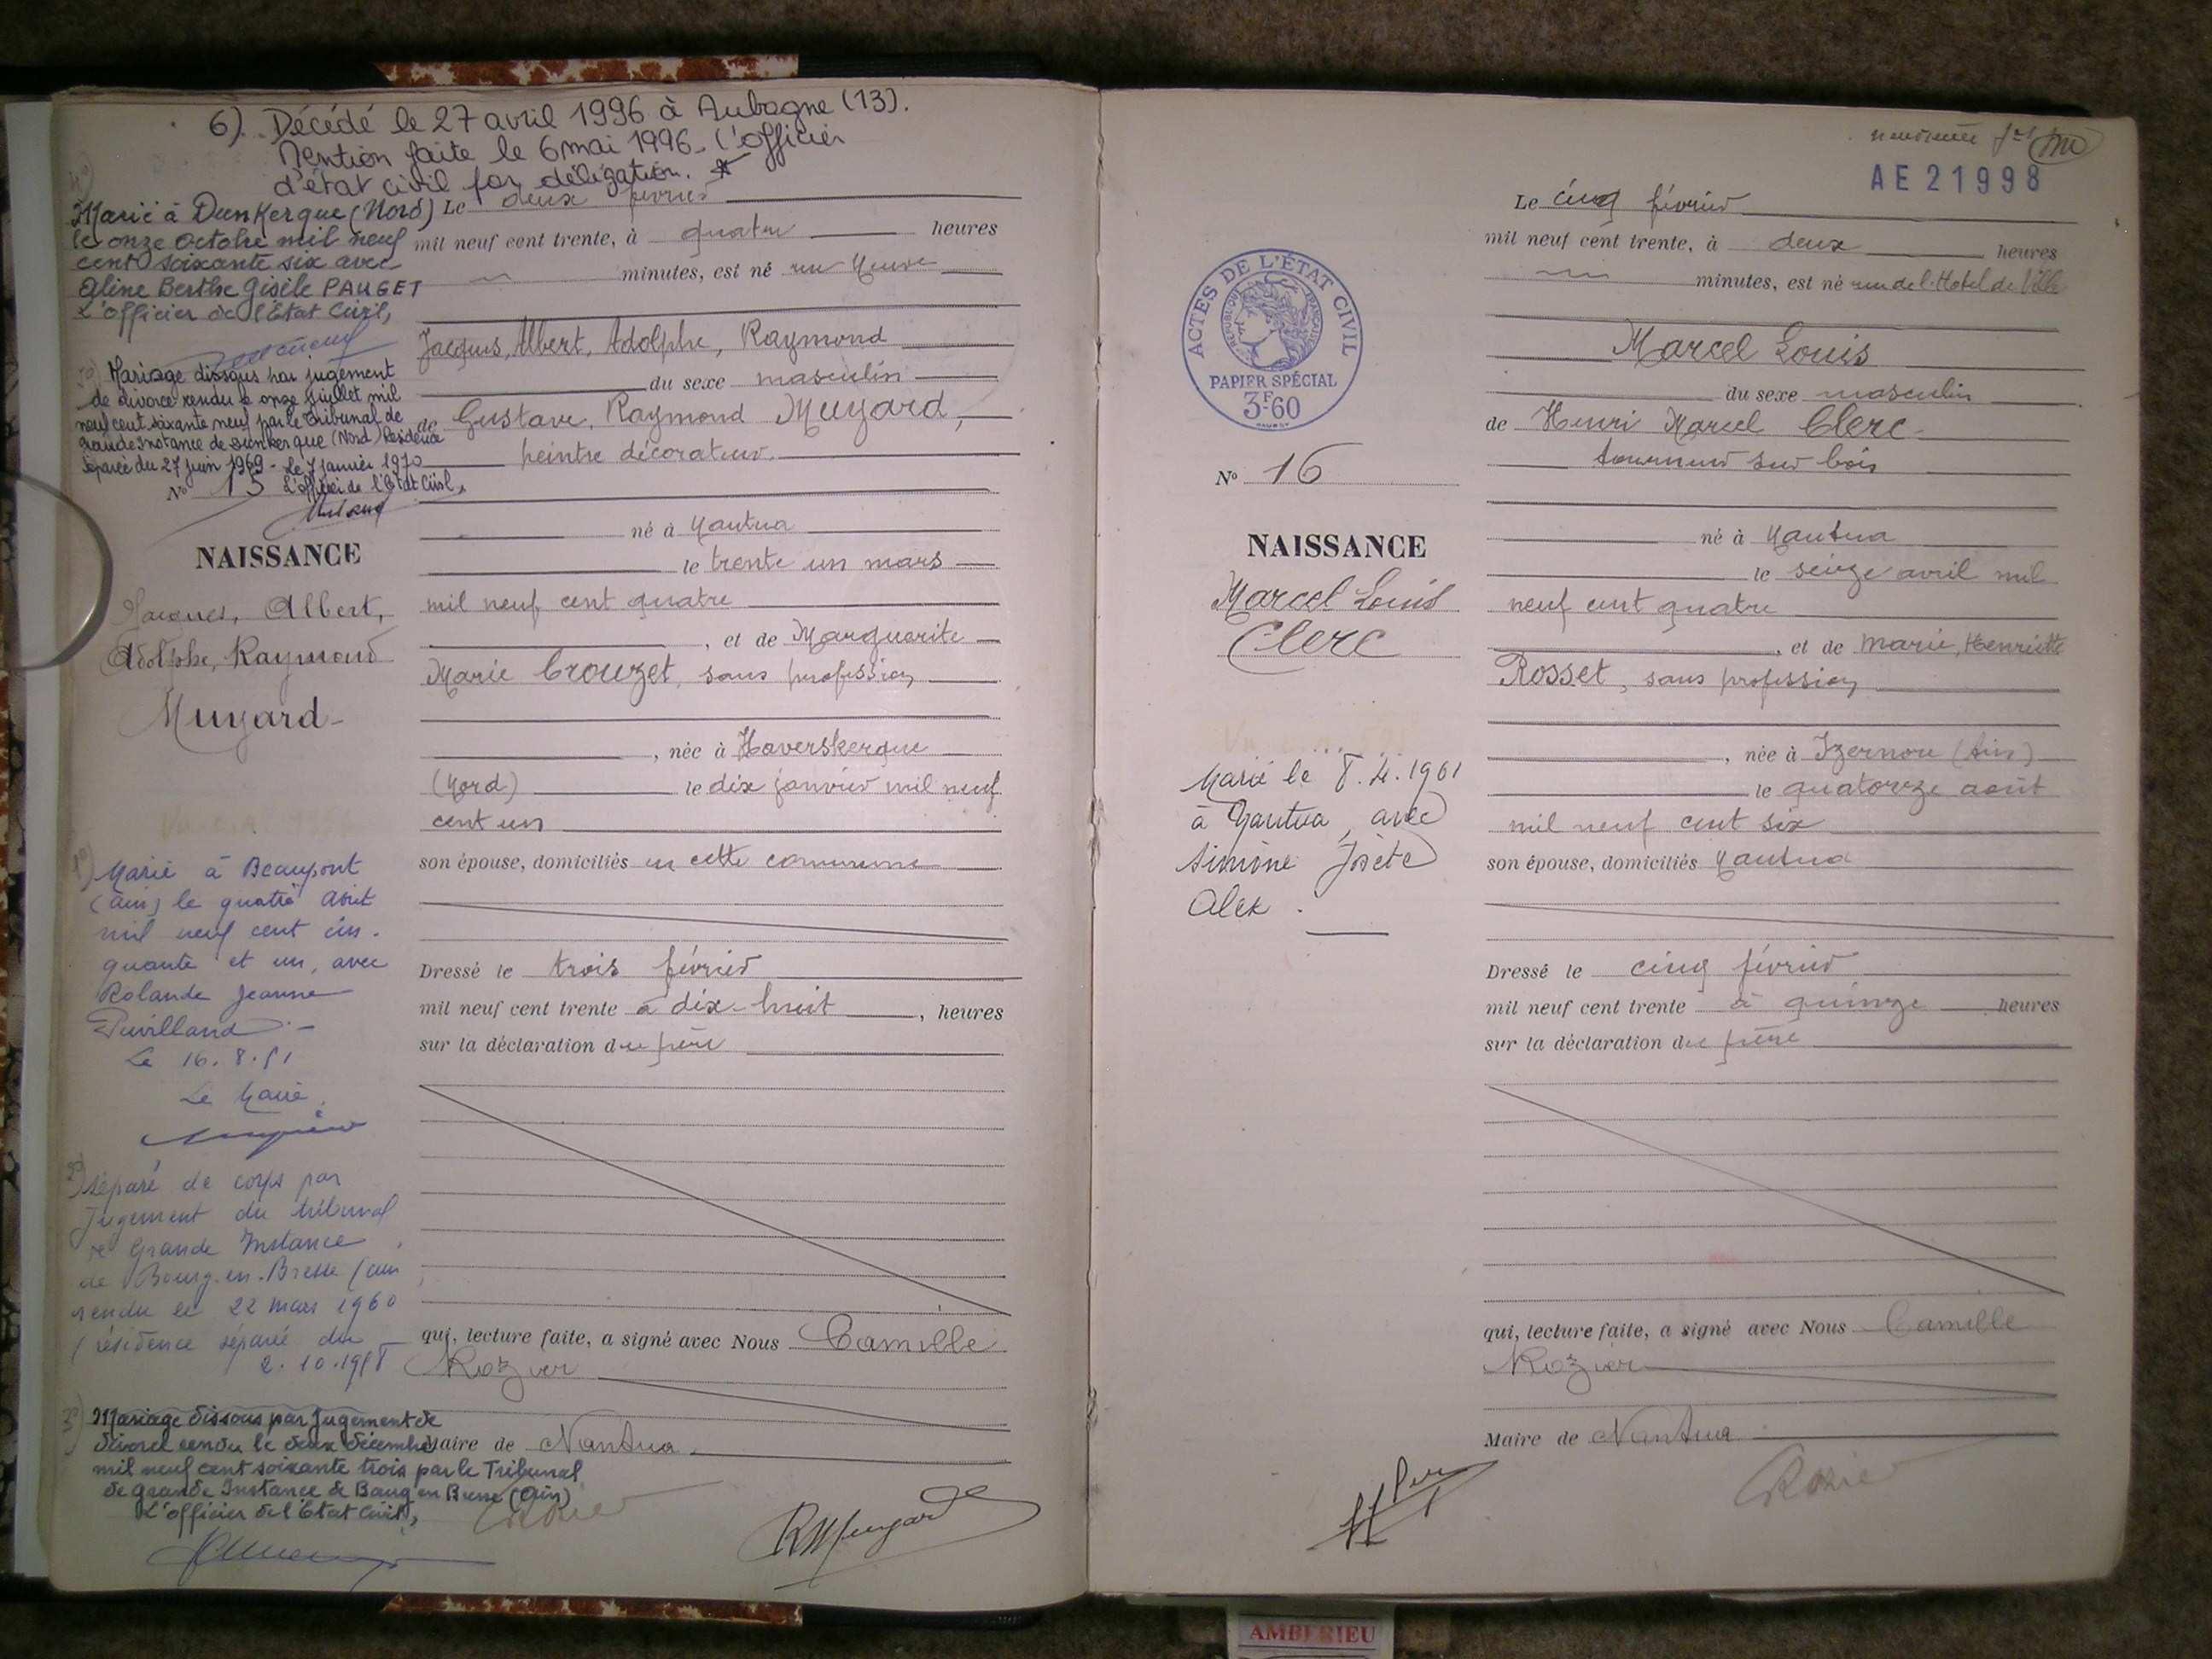 6). Décédé le 27 avril 1996 à Aubagne (13).
Mention faite le 6 mai 1996. L'officier
d'état civil par délégation.
4°)
Marié à Dunkerque (Nord)
le onze octobre mil neuf
cent soixante six avec
Aline Berthe Gisèle PAUGET
L'officier de l'Etat Civil,
5°) Mariage dissous par jugement
de divorce rendu le onze juillet mil
neuf cent soixante neuf par le Tribunal de
grande Instance de Dunkerque (Nord) Résidence
séparée du 27 juin 1969 - Le 7 janvier 1970
L'officier de l'Etat Civil,
N° 15
NAISSANCE
Jacques, Albert,
Adolphe, Raymond
Muyard
1°) Marié à Beaupont
(Ain) le quatre Août
mil neuf cent cin-
quante et un, avec
Rolande Jeanne
Puvilland
Le 16.8.51
Le Maire,
2°) Séparé de corps par
Jugement du tribunal
de Grande Instance
de Bourg-en-Bresse (Ain
rendu le 22 mars 1960
(résidence séparée du
2.10.1958
3°) Mariage dissous par Jugement de
divorce rendu le deux décembre
mil neuf cent soixante trois par le Tribunal
de Grande Instance de Bourg en Bresse (Ain)
L'officier de l'Etat Civil,
Le deux février
mil neuf cent trente, à quatre heures
minutes, est né rue Neuve
Jacques, Albert, Adolphe, Raymond
du sexe masculin
de Gustave, Raymond Muyard,
peintre décorateur.
né à Nantua
le trente un mars
mil neuf cent quatre
, et de Marguerite
Marie Crouzet, sans profession
, née à Haverskerque
(Nord) le dix janvier mil neuf
cent un
son épouse, domiciliés en cette commune
Dressé le trois février
mil neuf cent trente à dix-huit , heures
sur la déclaration du père
qui, lecture faite, a signé avec Nous Camille
Rozier
Maire de Nantua.
Rozier
RMuyard
AE 21998
ACTES DE L'ÉTAT CIVIL
RÉPUBLIQUE FRANÇAISE
PAPIER SPÉCIAL
3F60
N° 16
NAISSANCE
Marcel Louis
Clerc
Marié le 8.4.1961
à Nantua, avec
Simone Josète
Alex.
Le cinq février
mil neuf cent trente, à deux heures
minutes, est né rue de l'Hotel de Ville
Marcel Louis
du sexe masculin
de Henri Marcel Clerc
tourneur sur bois
né à Nantua
le seize avril mil
neuf cent quatre
, et de Marie, Henriette
Rosset, sans profession
, née à Izernore (Ain)
le quatorze août
mil neuf cent six
son épouse, domiciliés Nantua
Dressé le cinq février
mil neuf cent trente à quinze heures
sur la déclaration du père
qui, lecture faite, a signé avec Nous Camille
Rozier
Maire de Nantua
Rozier
AMBERIEU